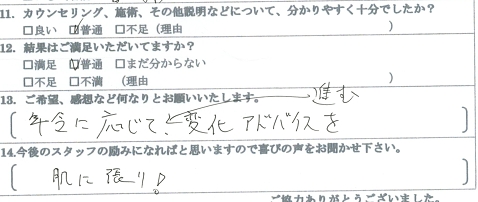 11. カウンセリング、施術、その他説明などについて、分かりやすく十分でしたか?
□良い ☑普通 □不足 (理由 )
12. 結果はご満足いただいてますか?
□満足 ☑普通 □まだ分からない
□不足 □不満 (理由 )
13. ご希望、感想など何なりとお願いいたします。
進む
年令に応じて、変化 アドバイスを
14.今後のスタッフの励みになればと思いますので喜びの声をお聞かせ下さい。
肌に張り!
ご協力ありがとうございました。